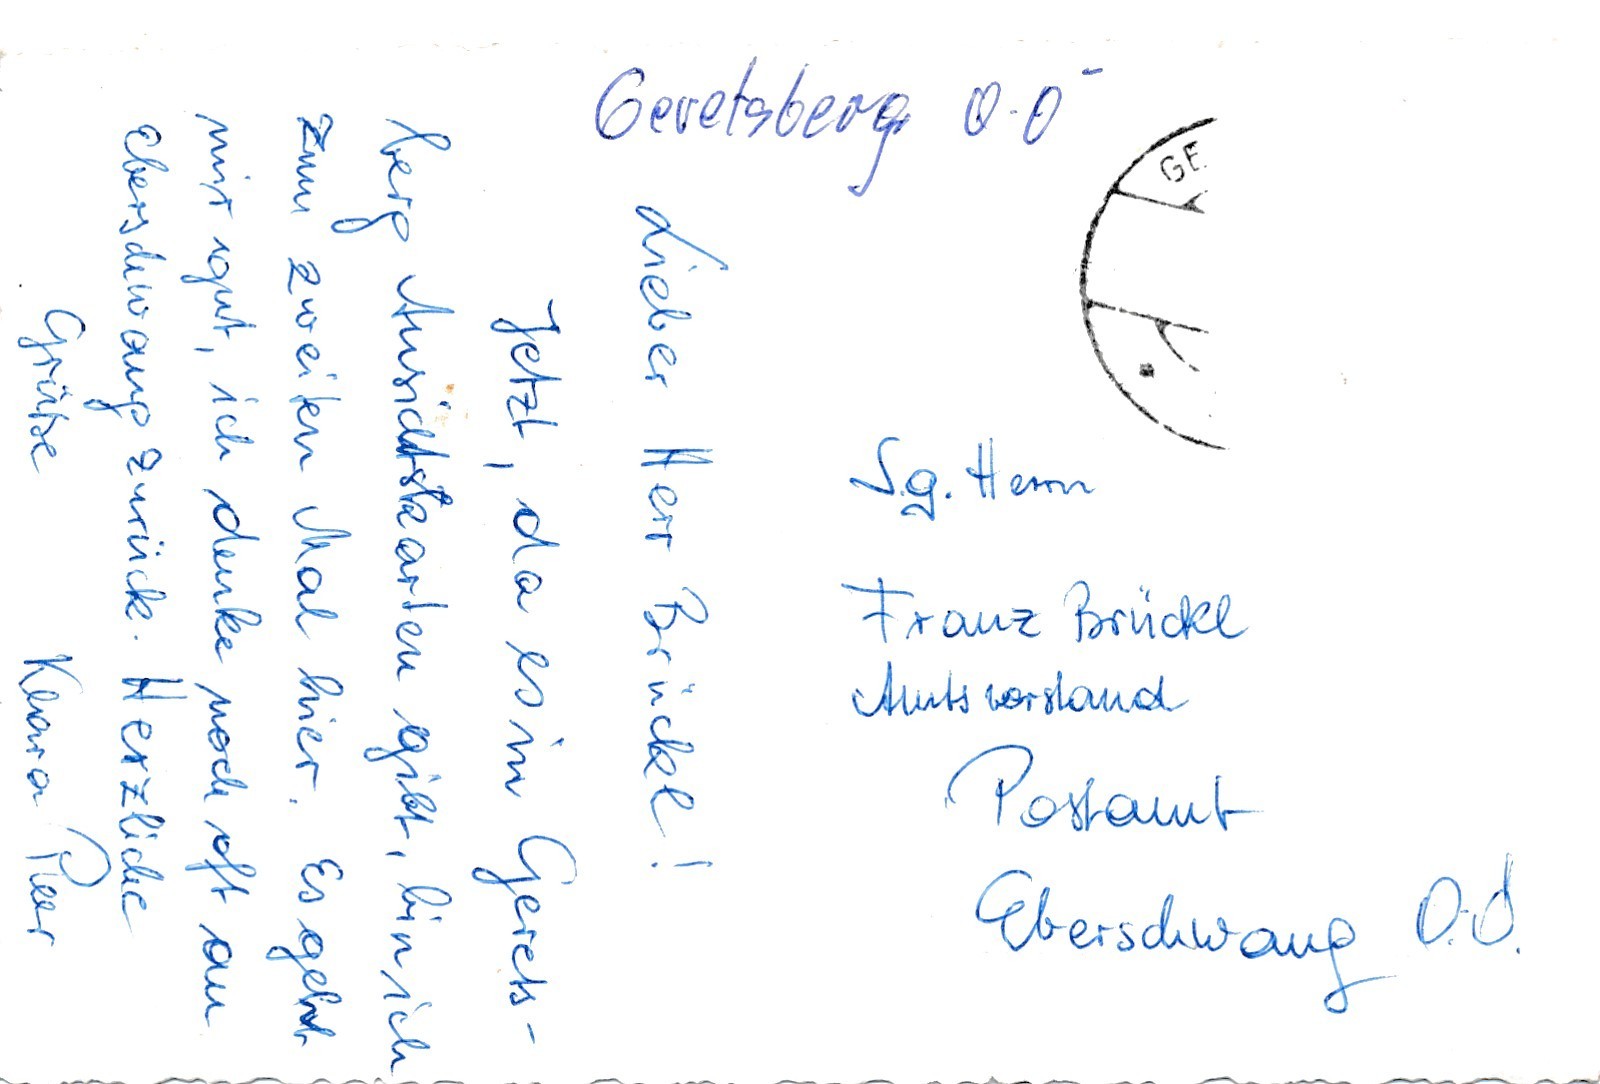 Geretsberg O.Ö
Lieber Herr Brückl!
Jetzt, da es in Gerets-
berg Ansichtskarten gibt, bin ich
zum zweiten Mal hier. Es geht
mir gut, ich denke noch oft an
Eberschwang zurück. Herzliche
Grüße Klara Peer
GE
S.g. Herrn
Franz Brückl
Amtsvorstand
Postamt
Eberschwang O.Ö.